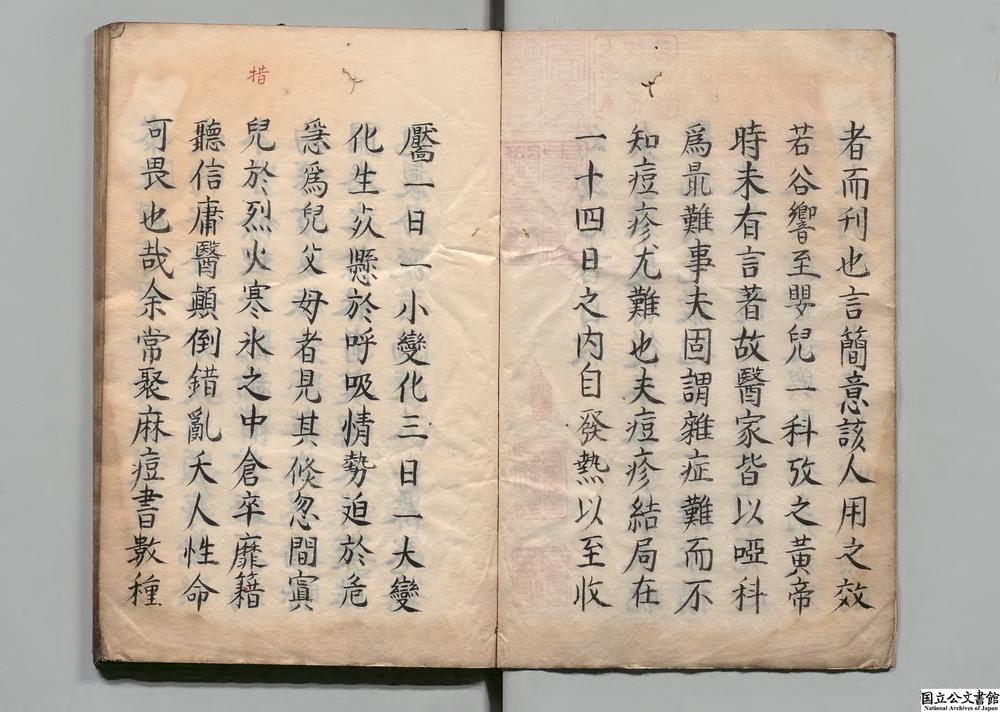 者而刊也言簡意該人用之效
若谷響至嬰兒一科攷之黃帝
時未有言著故醫家皆以啞科
爲最難事夫固謂雜症難而不
知痘疹尤難也夫痘疹結局在
一十四日之内自發熱以至收
靨一日一小變化三日一大變
化生死懸於呼吸情勢迫於危
急爲兒父母者見其倏忽間寘
兒於烈火寒氷之中倉卒靡籍
聽信庸醫顛倒錯亂夭人性命
可畏也哉余常聚麻痘書數種
措
国立公文書館
National Archives of Japan